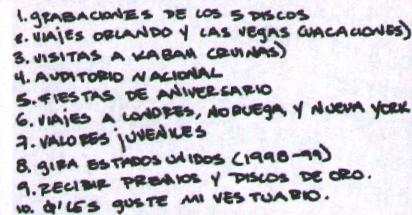 1. GRABACIONES DE LOS 5 DISCOS
2. VIAJES ORLANDO Y LAS VEGAS (VACACIONES)
3. VISITAS A KABAH (RUINAS)
4. AUDITORIO NACIONAL
5. FIESTAS DE ANIVERSARIO
6. VIAJES A LONDRES, NORUEGA, Y NUEVA YORK
7. VALORES JUVENILES
8. GIRA ESTADOS UNIDOS (1998-99)
9. RECIBIR PREMIOS Y DISCOS DE ORO.
10. Q' LES GUSTE MI VESTUARIO.